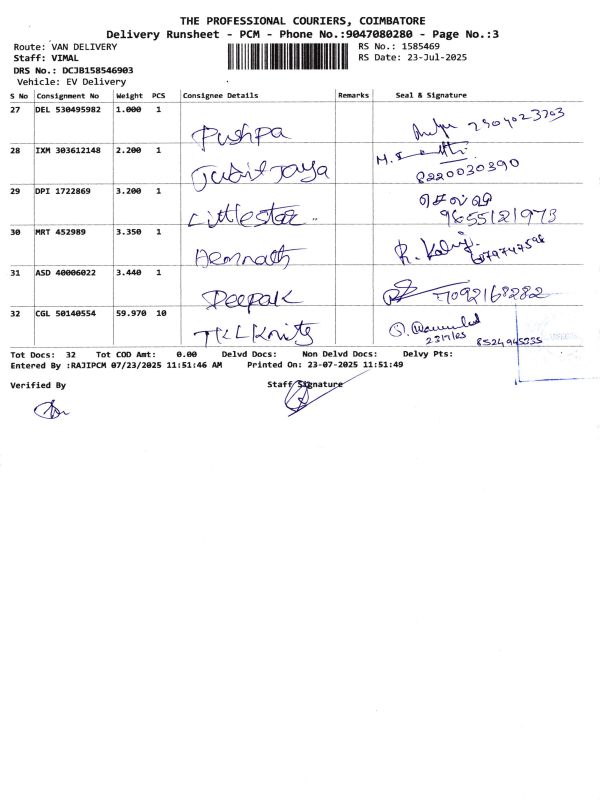 THE PROFESSIONAL COURIERS, COIMBATORE
Delivery Runsheet - PCM - Phone No.:9047080280 - Page No.:3
Route: VAN DELIVERY
RS No.: 1585469
Staff: VIMAL
RS Date: 23-Jul-2025
DRS No.: DCJB158546903
Vehicle: EV Delivery
S No Consignment No Weight PCS Consignee Details Remarks Seal & Signature
27 DEL 530495982 1.000 1 Pushpa
28 IXM 303612148 2.200 1 8220030390
29 DPI 1722869 3.200 1 Littlestar செல்வி 9655121973
30 MRT 452989 3.350 1 Hemnath
31 ASD 40006022 3.440 1 Deepak 7092168282
32 CGL 50140554 59.970 10 TKL Knits 23/7/25 8524945335
Tot Docs: 32 Tot COD Amt: 0.00 Delvd Docs: Non Delvd Docs: Delvy Pts:
Entered By :RAJIPCM 07/23/2025 11:51:46 AM Printed On: 23-07-2025 11:51:49
Verified By Staff Signature